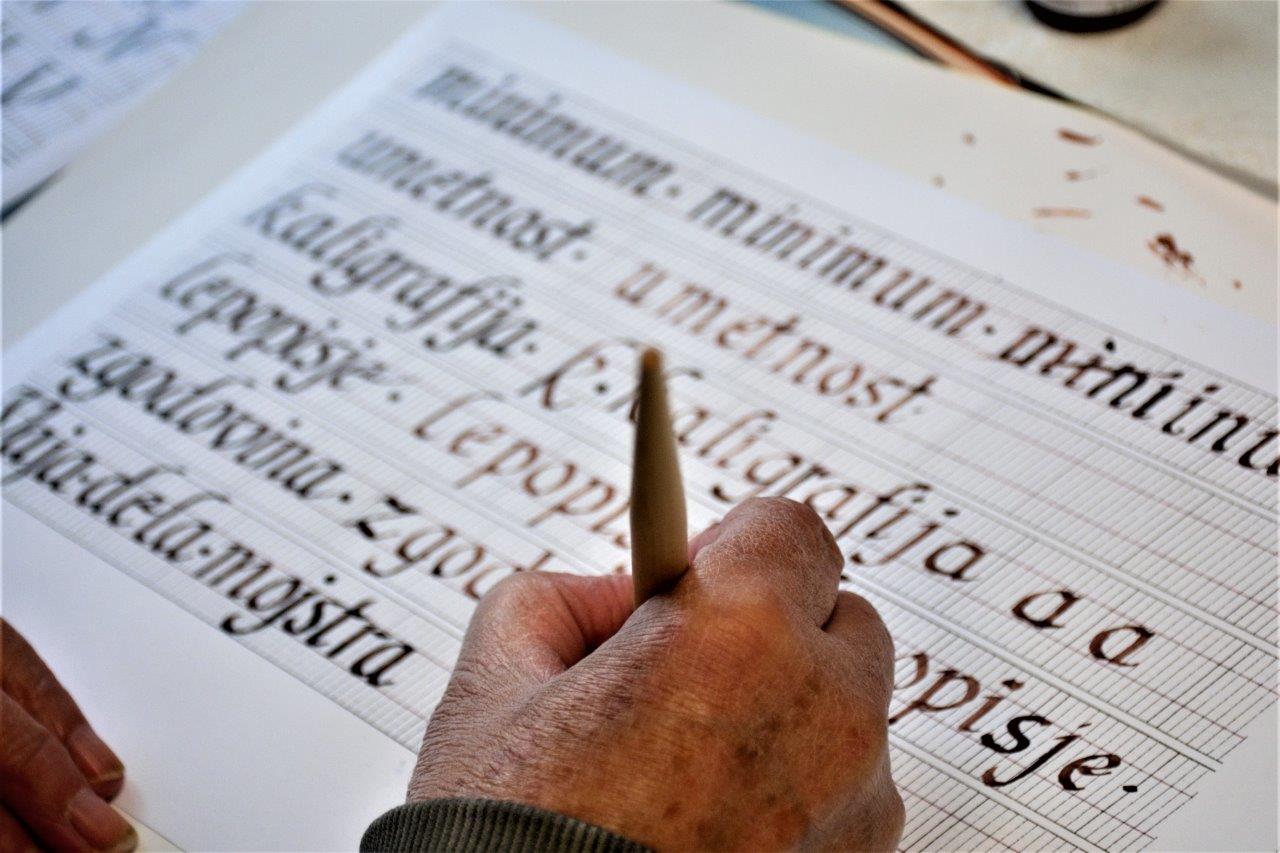 minimum · minimum · miniinu
umetnost · umetnost ·
kaligrafija · k · kaligrafija a a a
lepopisje · lepopi opisje ·
zgodovina · zgod
vaja · dela · mojstra